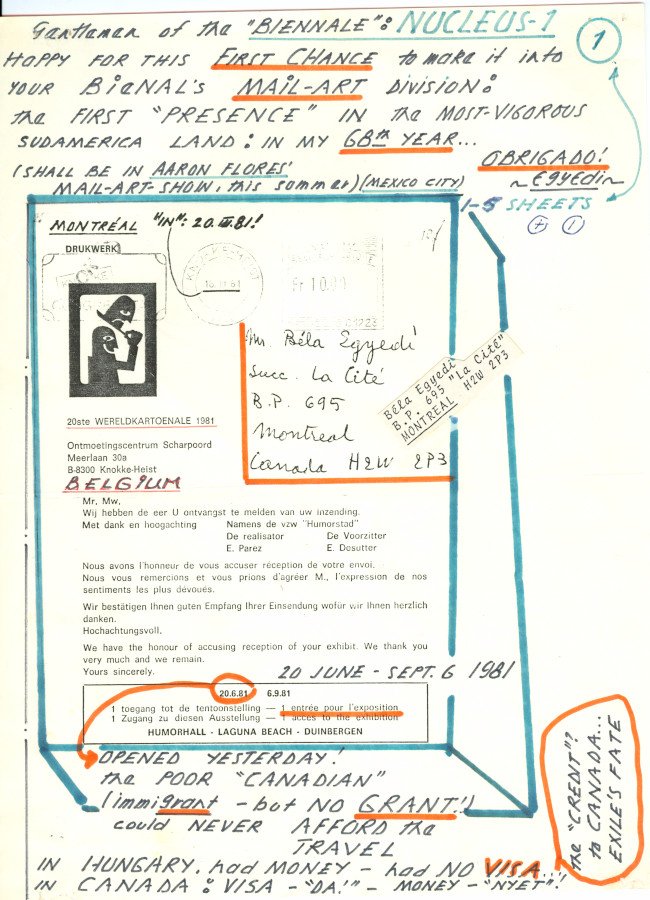 Gentlemen of the "BIENNALE": NUCLEUS-1
1
HAPPY FOR THIS FIRST CHANCE to make it into
YOUR BIENAL'S MAIL-ART DIVISION:
the FIRST "PRESENCE" IN the MOST-VIGOROUS
SUDAMERICA LAND: IN MY 68th YEAR...
OBRIGADO!
~EGYEDI~
(SHALL BE IN AARON FLORES'
MAIL-ART-SHOW, this summer) (MEXICO CITY)
1-5 SHEETS
+ 1
MONTRÉAL "IN": 20.III.81!
DRUKWERK
Fr 10.00
Mr. Béla Egyedi
Succ. La Cité
B.P. 695
Montreal
Canada H2W 2P3
Béla Egyedi
B.P. 695 "La Cité"
MONTRÉAL H2W 2P3
20ste WERELDKARTOENALE 1981
Ontmoetingscentrum Scharpoord
Meerlaan 30a
B-8300 Knokke-Heist
BELGIUM
Mr. Mw.
Wij hebben de eer U ontvangst te melden van uw inzending.
Met dank en hoogachting Namens de vzw "Humorstad"
De realisator De Voorzitter
E. Parez E. Desutter
Nous avons l'honneur de vous accuser réception de votre envoi.
Nous vous remercions et vous prions d'agréer M., l'expression de nos
sentiments les plus dévoués.
Wir bestätigen Ihnen guten Empfang Ihrer Einsendung wofür wir Ihnen herzlich
danken.
Hochachtungsvoll.
We have the honour of accusing reception of your exhibit. We thank you
very much and we remain.
Yours sincerely.
20 JUNE - SEPT. 6 1981
20.6.81 6.9.81
1 toegang tot de tentoonstelling — 1 entrée pour l'exposition
1 Zugang zu diesen Ausstellung — 1 acces to the exhibition
HUMORHALL - LAGUNA BEACH - DUINBERGEN
OPENED YESTERDAY!
the POOR "CANADIAN"
(immigrant - but NO GRANT!)
could NEVER AFFORD the
TRAVEL
IN HUNGARY. had MONEY - had NO VISA...
IN CANADA: VISA - "DA!" - MONEY - "NYET"!
the "CREDIT"?
to CANADA...
EXILE'S FATE